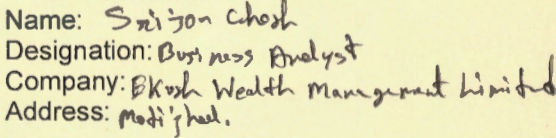 Name: Srijon Ghosh
Designation: Business Analyst
Company: EKush Wealth Management Limited
Address: Motijheel.